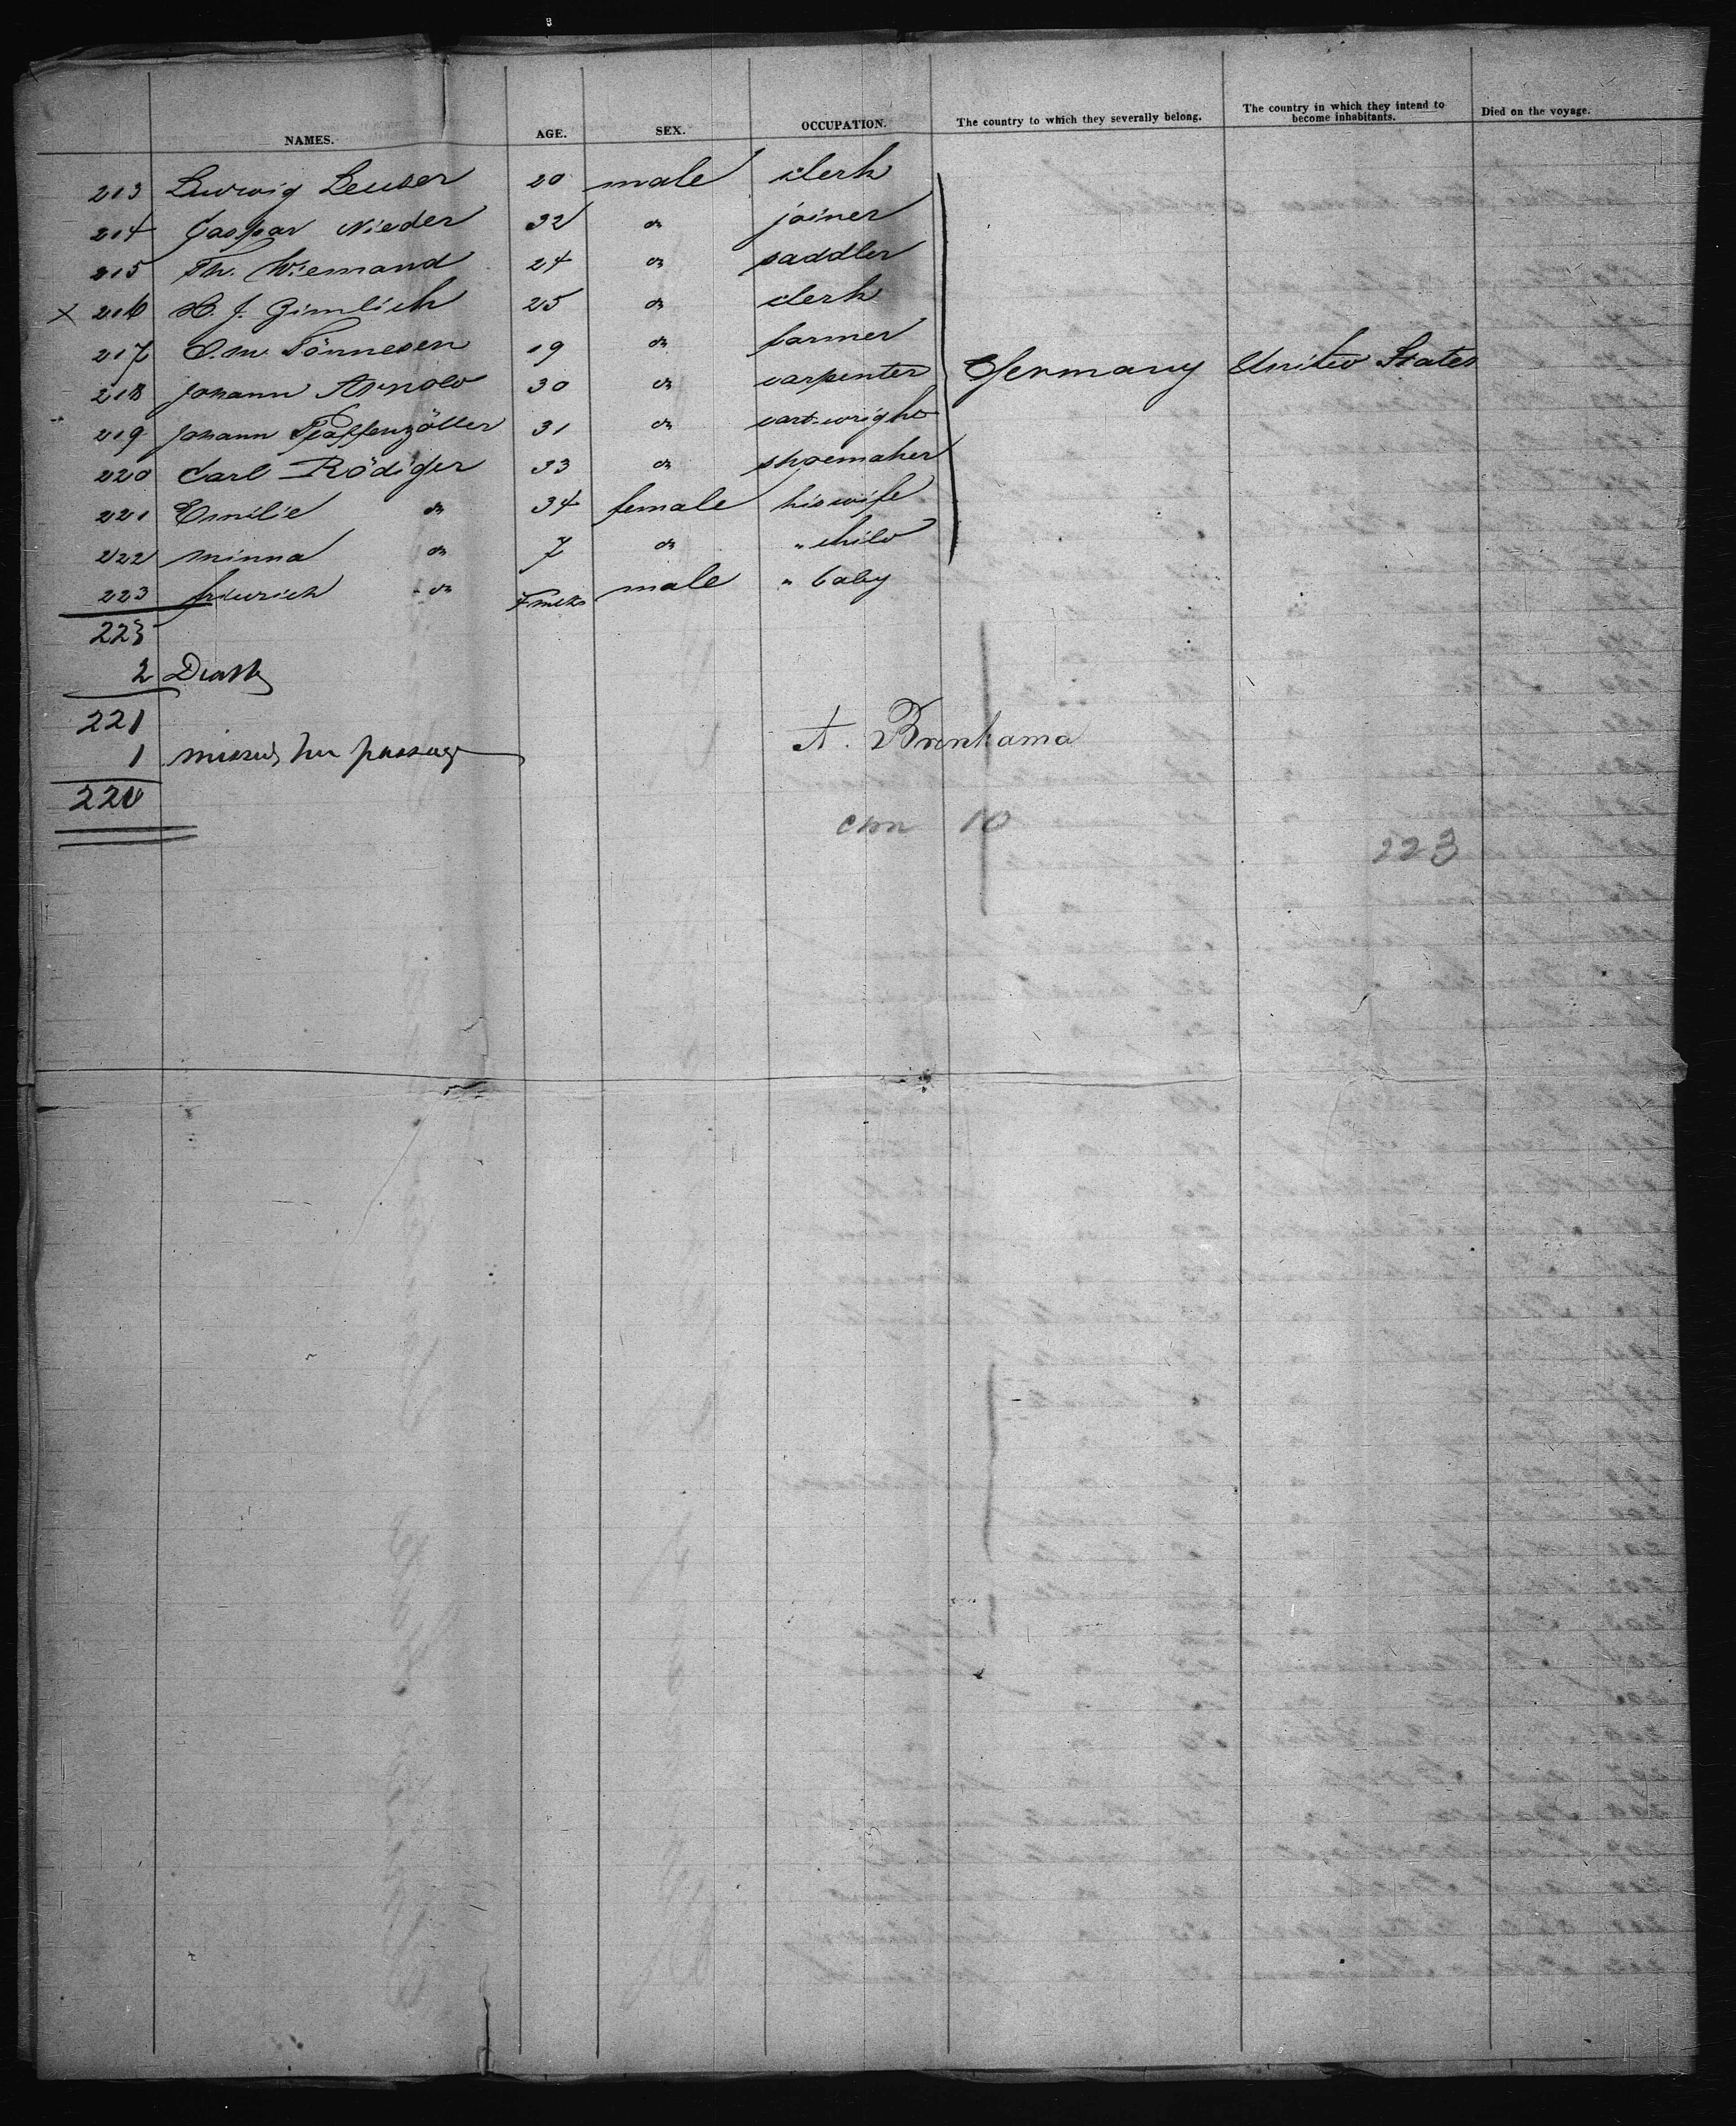 NAMES. AGE. SEX. OCCUPATION. The country to which they severally belong. The country in which they intend to become inhabitants. Died on the voyage.
213 Ludwig Leuser 20 male clerk
214 Caspar Nieder 32 do joiner
215 Th. Wiemand 24 do saddler
x 216 H. J. Zimlich 25 do clerk
217 C. M. Tönnesen 19 do farmer
218 Johann Arnold 30 do carpenter Germany United States
219 Johann Pfaffenzöller 31 do cart-wright
220 Carl Rödiger 33 do shoemaker
221 Emilie do 34 female his wife
222 Minna do 7 do " child
223 Friedrich do male " baby
223
2 Deaths
221
1 missed her passage
220
A.
10
223